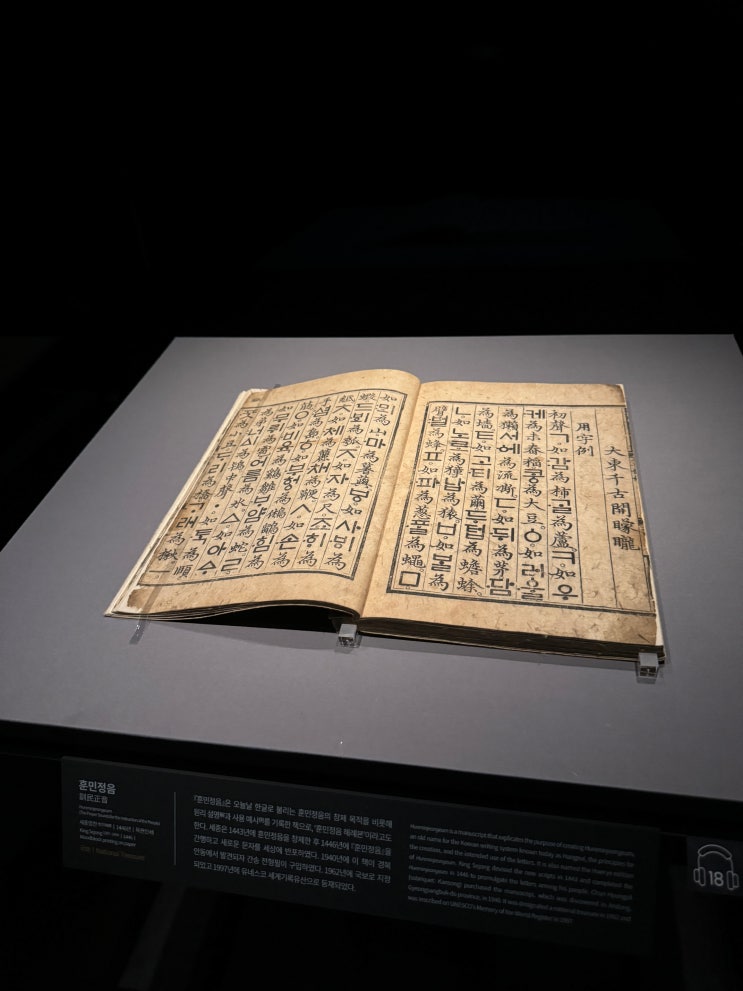 大東千古開矇矓
用字例
初聲ㄱ如감為柿ᄀᆞᆯ為蘆ㅋ如우
케為未舂稻콩為大豆ㆁ如러울
為獺서에為流凘ㄷ如뒤為茅담
為墻ㅌ如고티為繭두텁為蟾蜍
ㄴ如노로為獐납為猿ㅂ如ᄇᆞᆯ為
臂벌為蜂ㅍ如파為葱ᄑᆞᆯ為蠅ㅁ
如뫼為山마為薯藇ㅸ如사ᄫᅵ為
蝦드ᄫᅴ為瓠ㅈ如자為尺죠ᄒᆡ為
紙ㅊ如체為籭채為鞭ㅅ如손為
手셤為島ㅎ如부헝為鵂鶹힘為
筋ㅇ如비육為鷄雛ᄇᆞ얌為蛇ㄹ
如무뤼為雹어름為氷ㅿ如아ᅀᆞ
為弟너ᅀᅵ為鴇中聲ㆍ如ᄐᆞᆨ為頤
ᄑᆞᆺ為小豆ᄃᆞ리為橋ᄀᆞ래為楸
훈민정음
訓民正音
Hunminjeongeum
(The Proper Sounds for the Instruction of the People)
국보 | National Treasure
『훈민정음』은 오늘날 한글로 불리는 훈민정음의 창제 목적을 비롯해
원리 설명과 사용 예시를 기록한 책으로, '훈민정음 해례본'이라고도
한다. 세종은 1443년에 훈민정음을 창제한 후 1446년에 『훈민정음』을
간행하고 새로운 문자를 세상에 반포하였다. 1940년에 이 책이 경북
안동에서 발견되자 간송 전형필이 구입하였다. 1962년에 국보로 지정
되었고 1997년에 유네스코 세계기록유산으로 등재되었다.
Hunminjeongeum is a manuscript that explicates the purpose of creating Hunminjeongeum,
an old name for the Korean writing system known today as Hangeul, the principles in
the creation, and the intended use of the letters. It is also called the Haerye edition
of Hunminjeongeum. King Sejong devised the new scripts in 1443 and completed the
Hunminjeongeum in 1446 to promulgate the letters among his people.
18